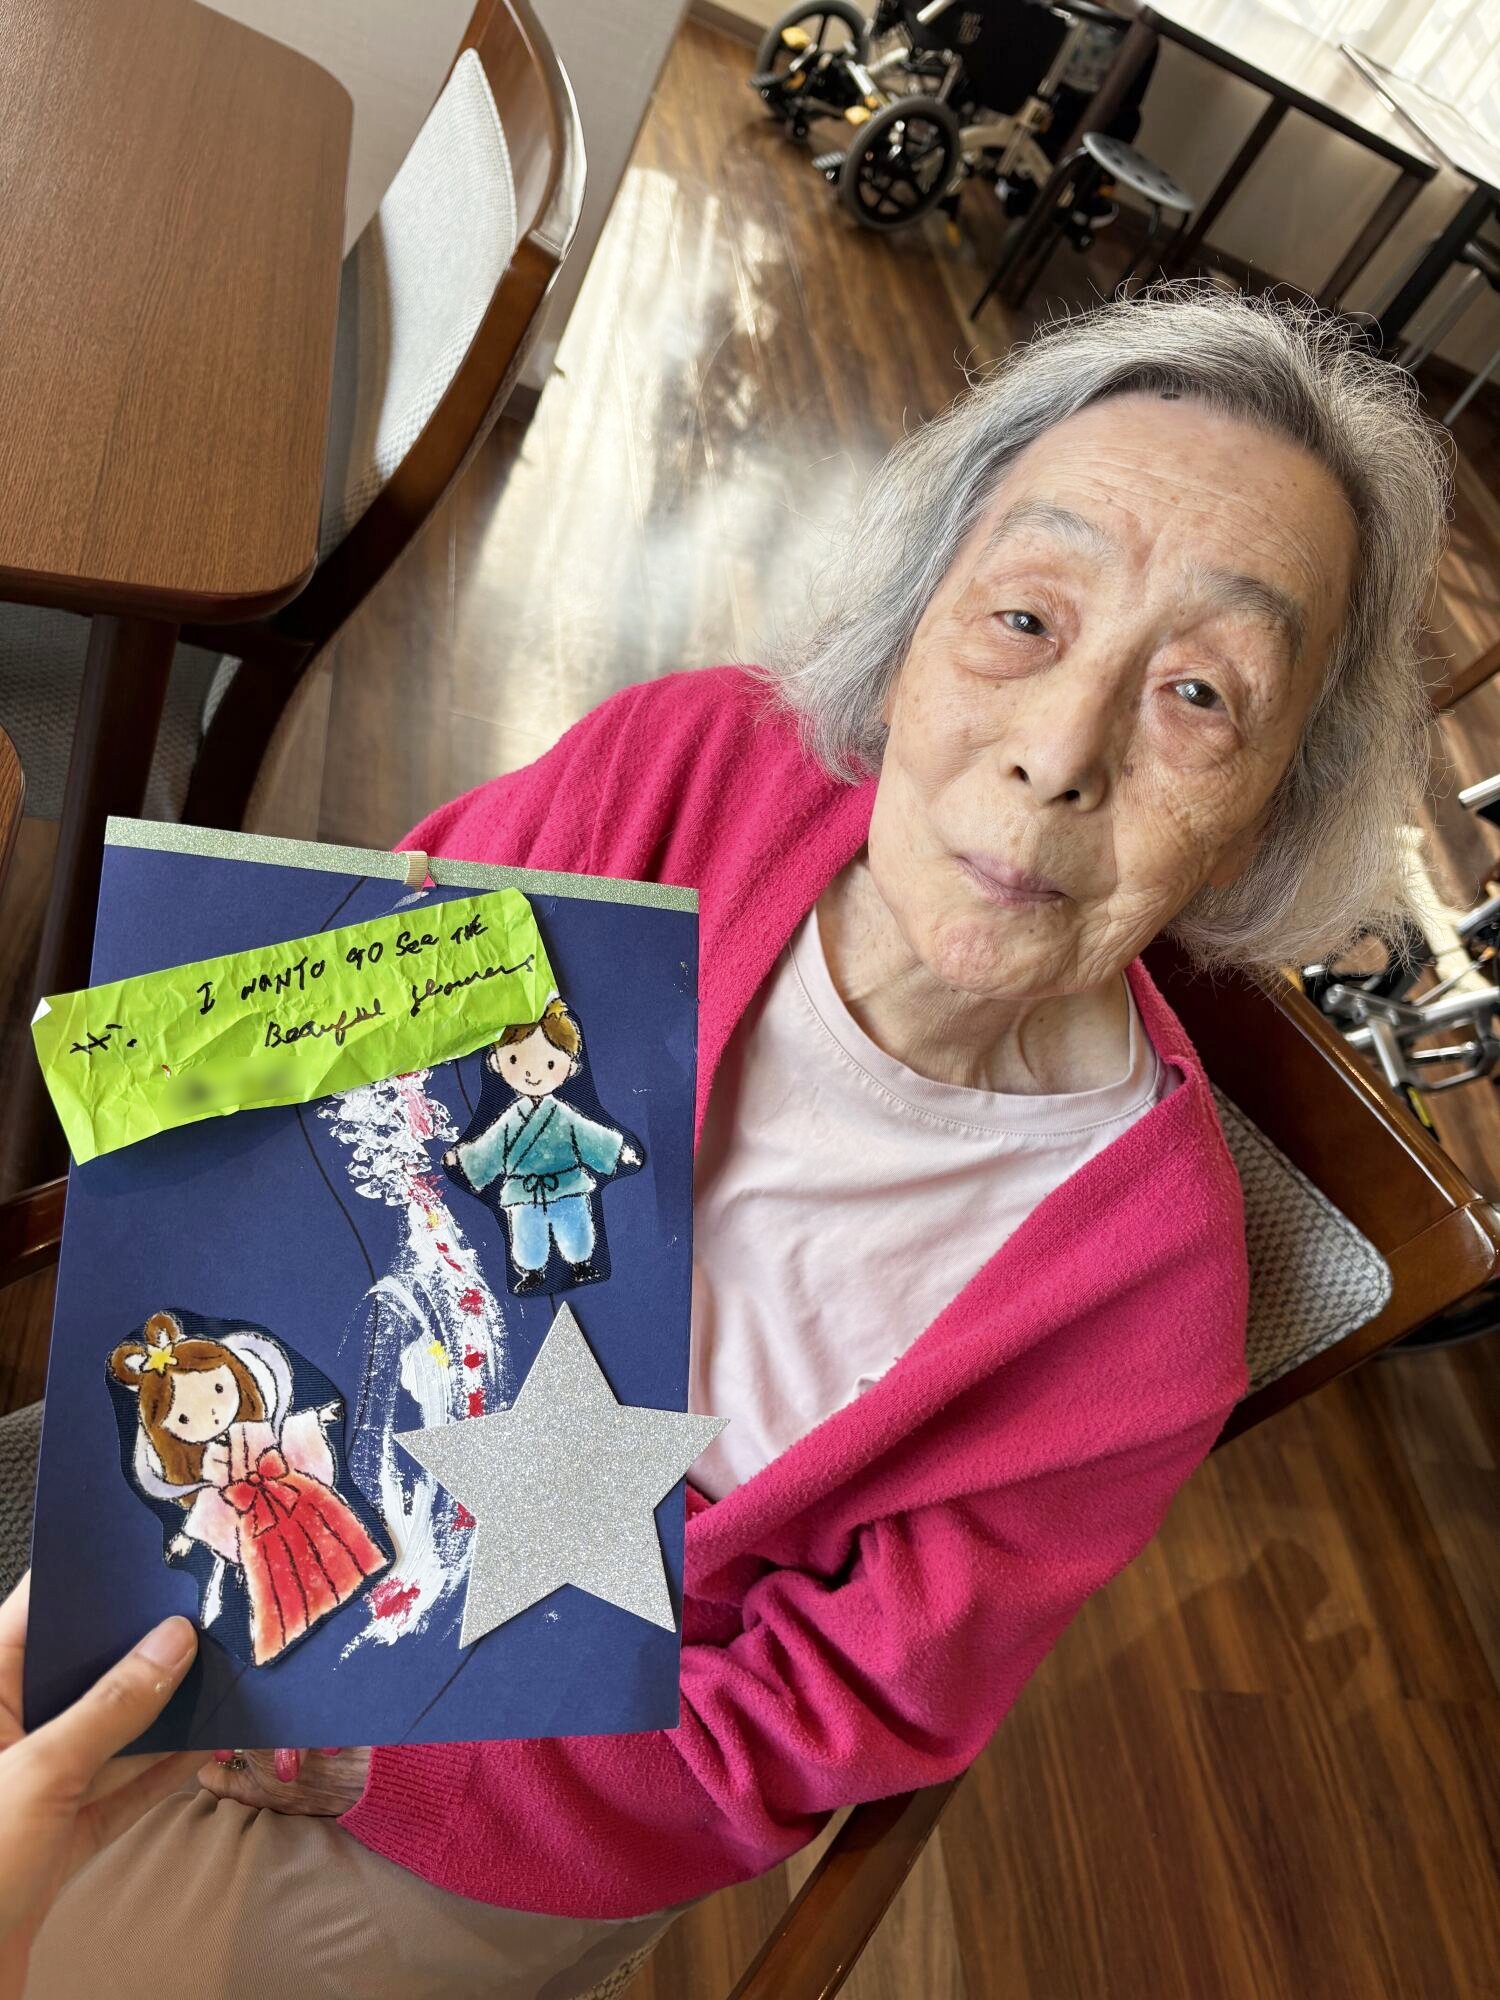 Hi. I WANTO GO See THE
Beautiful flowers